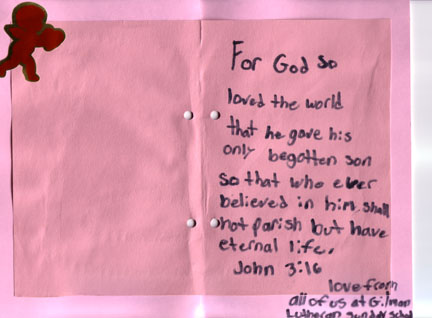 For God so
loved the world
that he gave his
only begotten son
so that who ever
believed in him shall
not parish but have
eternal life.
John 3:16
love from
all of us at Gilman
Lutheran sunday school